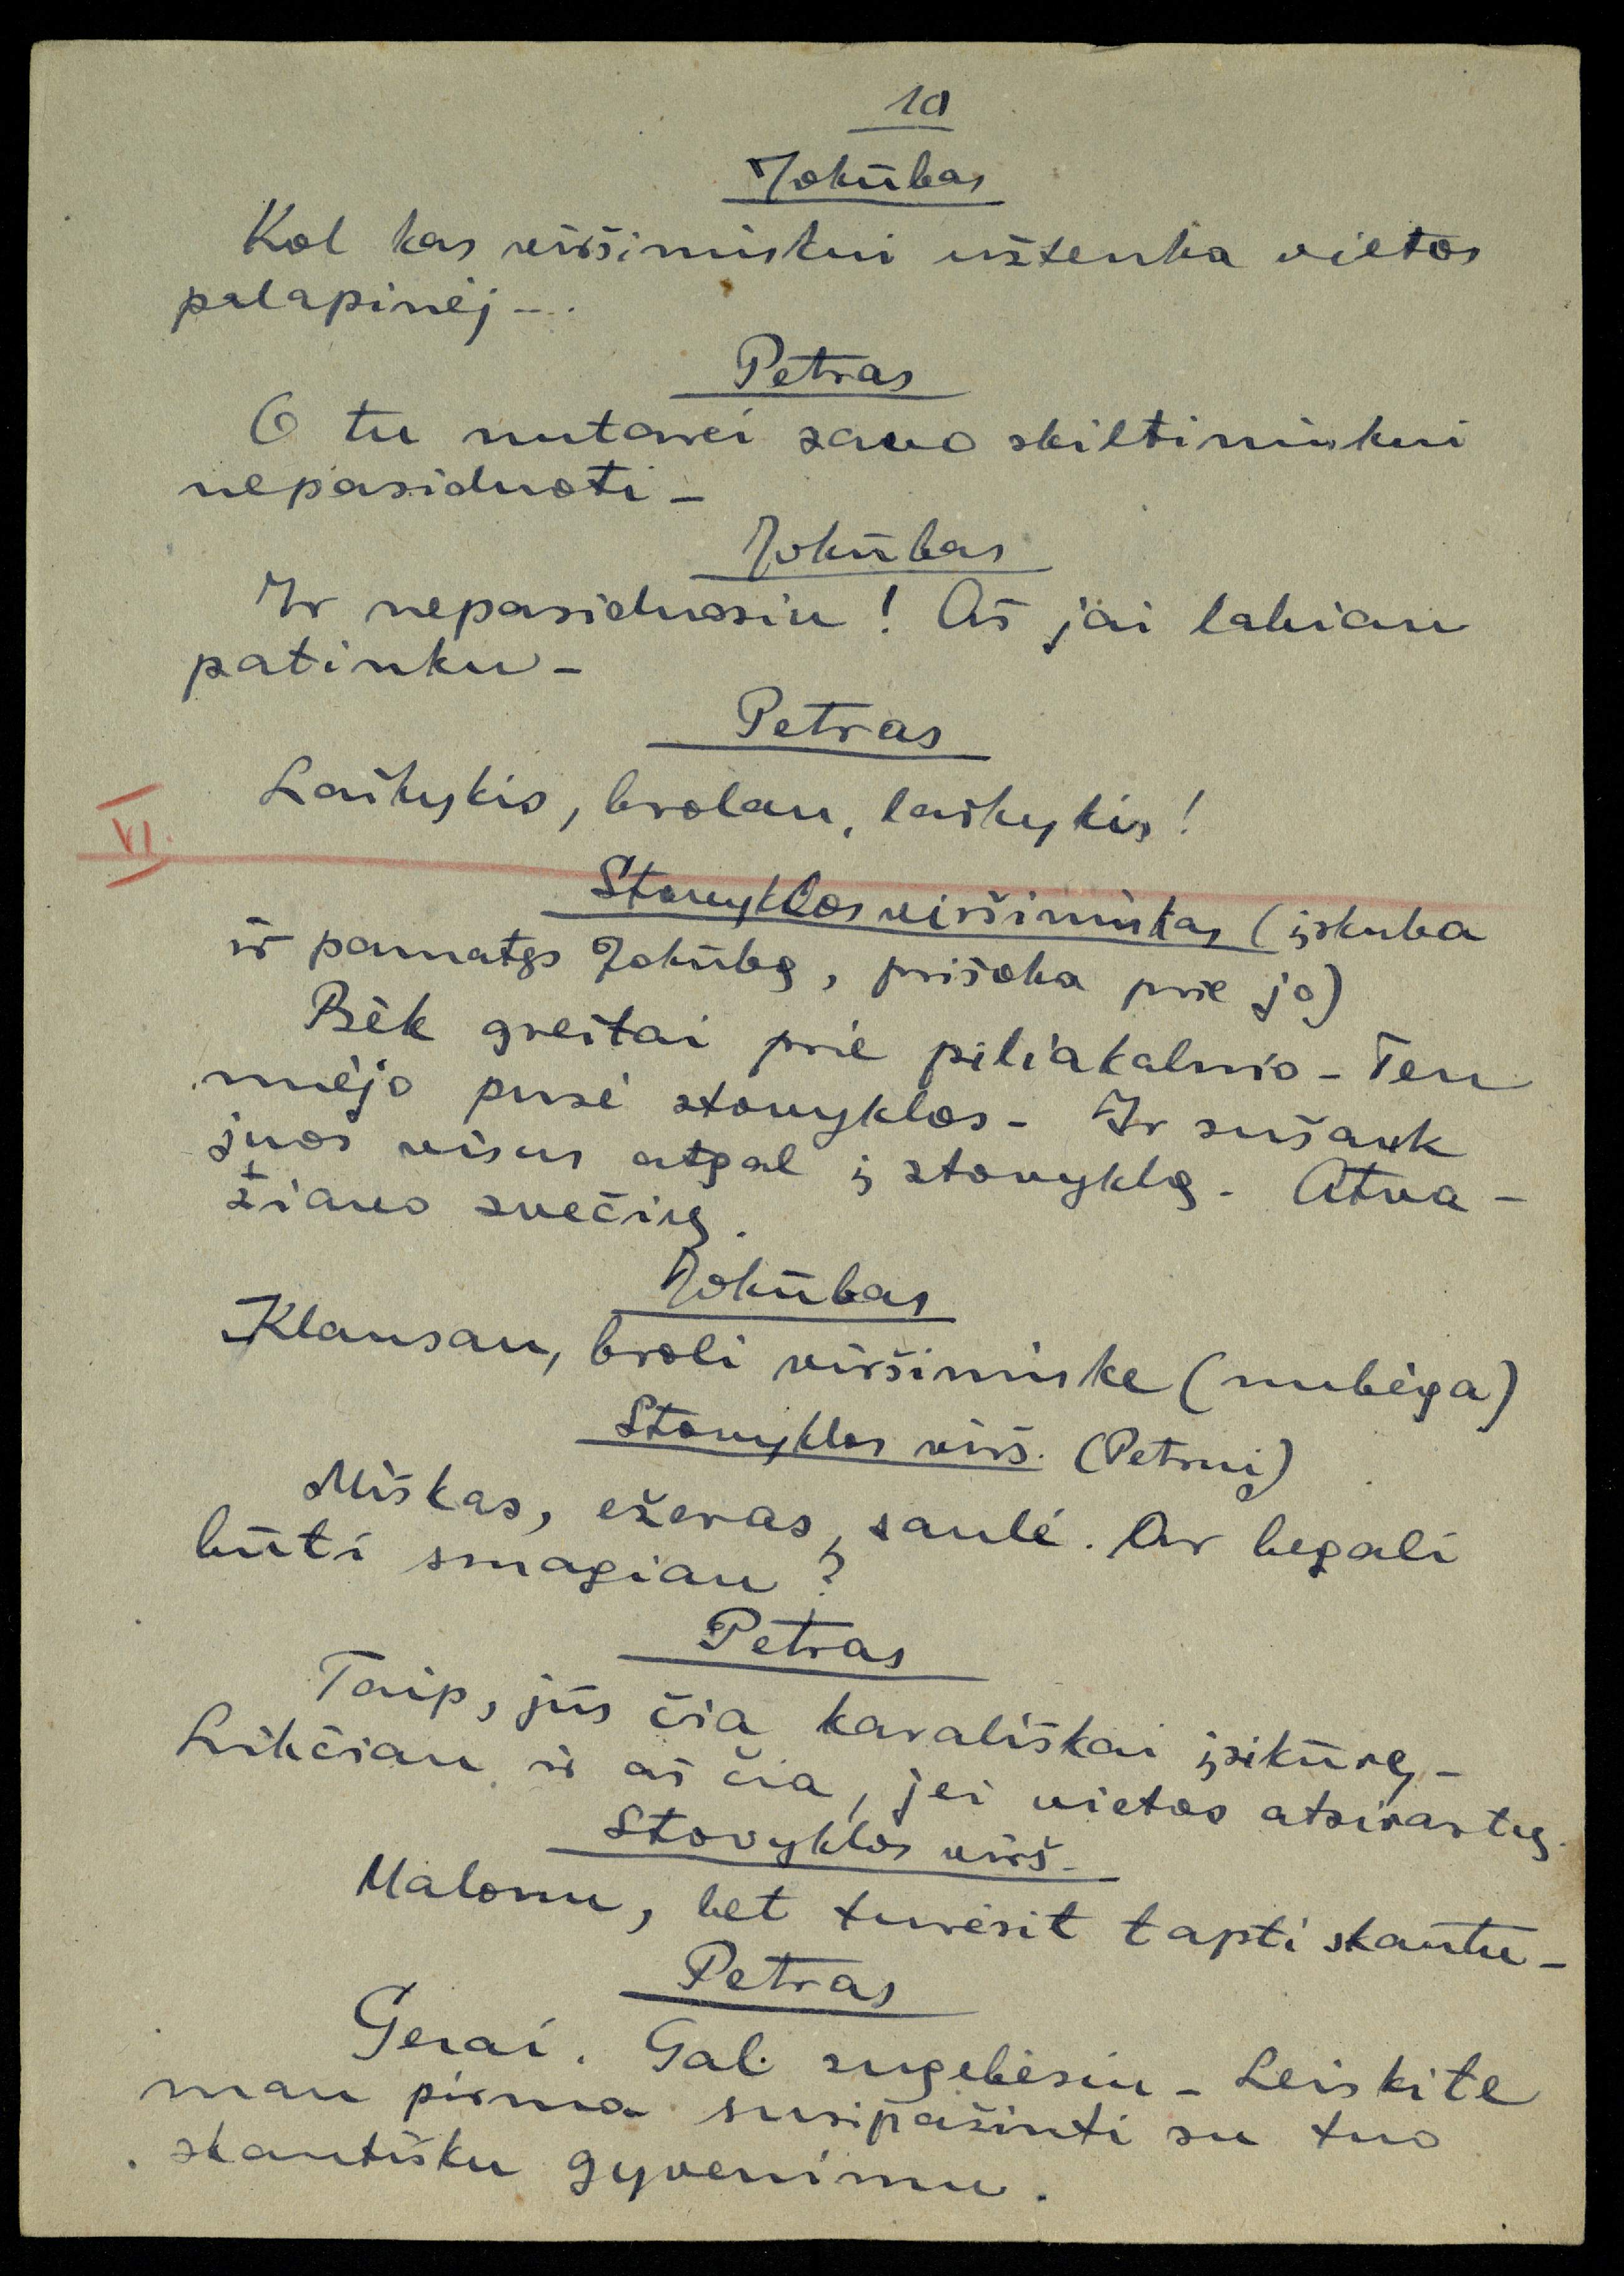 10
Jokūbas
Kol kas viršininkui užtenka vietos
palapinėj...
Petras
O tu nutarei savo skiltininkui
nepasiduoti -
Jokūbas
Ir nepasiduosiu! Aš jai labiau
patinku -
Petras
Laikykis, brolau, laikykis!
VI.
Stovyklos viršininkas (įskuba
ir pamatęs Jokūbą, prišoka prie jo)
Bėk greitai prie piliakalnio - Ten
nuėjo pusė stovyklos - Ir sušauk
juos visus atgal į stovyklą. Atva-
žiavo svečių.
Jokūbas
Klausau, broli viršininke (nubėga)
Stovyklos virš. (Petrui)
Miškas, ežeras, saulė. Ar begali
būti smagiau?
Petras
Taip, jūs čia karališkai įsikūrę -
Likčiau ir aš čia, jei vietos atsirastų.
Stovyklos virš.
Malonu, bet turėsit tapti skautu -
Petras
Gerai. Gal sugebėsiu - Leiskite
man pirma susipažinti su tuo
skautišku gyvenimu.